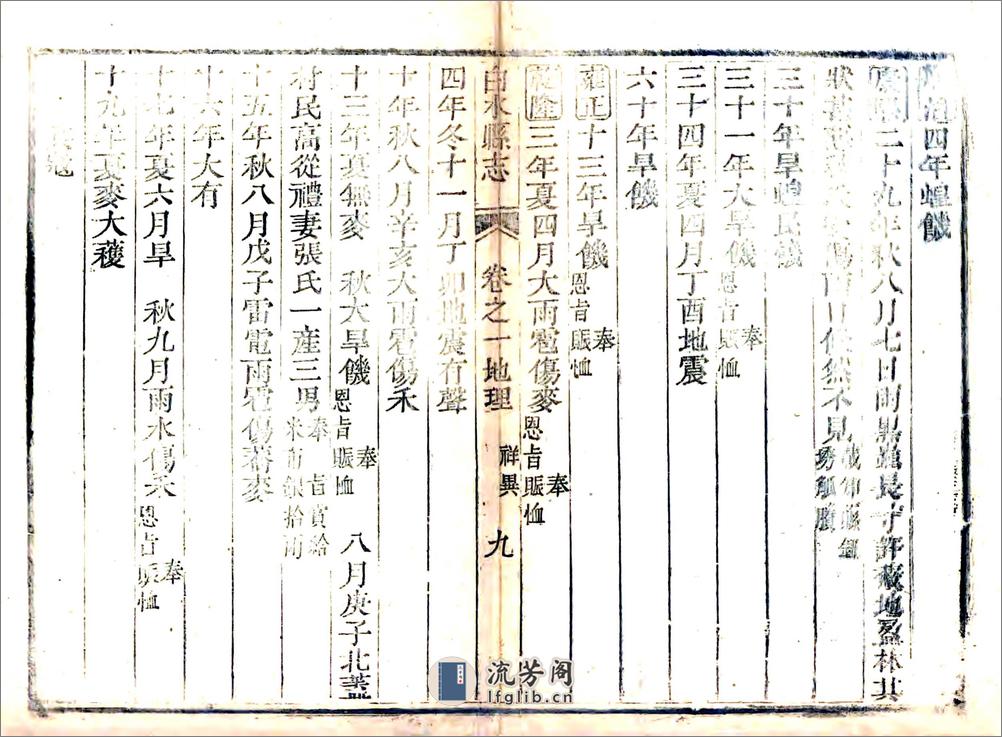 治四年蝗饑
康熙二十九年秋八月七日雨黑蟲長寸許蔽地盈林其
狀若 傷 日依然不見
三十年旱蝗民饑
三十一年大旱饑 奉恩旨賑恤
三十四年夏四月丁酉地震
六十年旱饑
雍正十三年旱饑 奉恩旨賑恤
乾隆三年夏四月大雨雹傷麥 奉恩旨賑恤
白水縣志 卷之一地理 祥異 九
四年冬十一月丁卯地震有聲
十年秋八月辛亥大雨雹傷禾
十三年夏無麥 秋大旱饑 奉恩旨賑恤 八月庚子北蓋
村民高從禮妻張氏一產三男 奉旨賞給米布銀拾兩
十五年秋八月戊子雷電雨雹傷蕎麥
十六年大有
十七年夏六月旱 秋九月雨水傷禾 奉恩旨賑恤
十九年夏麥大穫
流芳阁
lfglib.cn